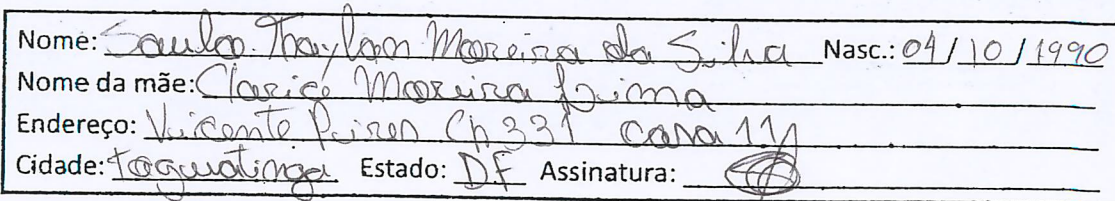 Nome: Saulo Thaylon Moreira da Silva Nasc.: 04/10/1990
Nome da mãe: Clarice Moreira Lima
Endereço: Vicente Pires Ch 331 casa 11
Cidade: Taguatinga Estado: DF Assinatura: